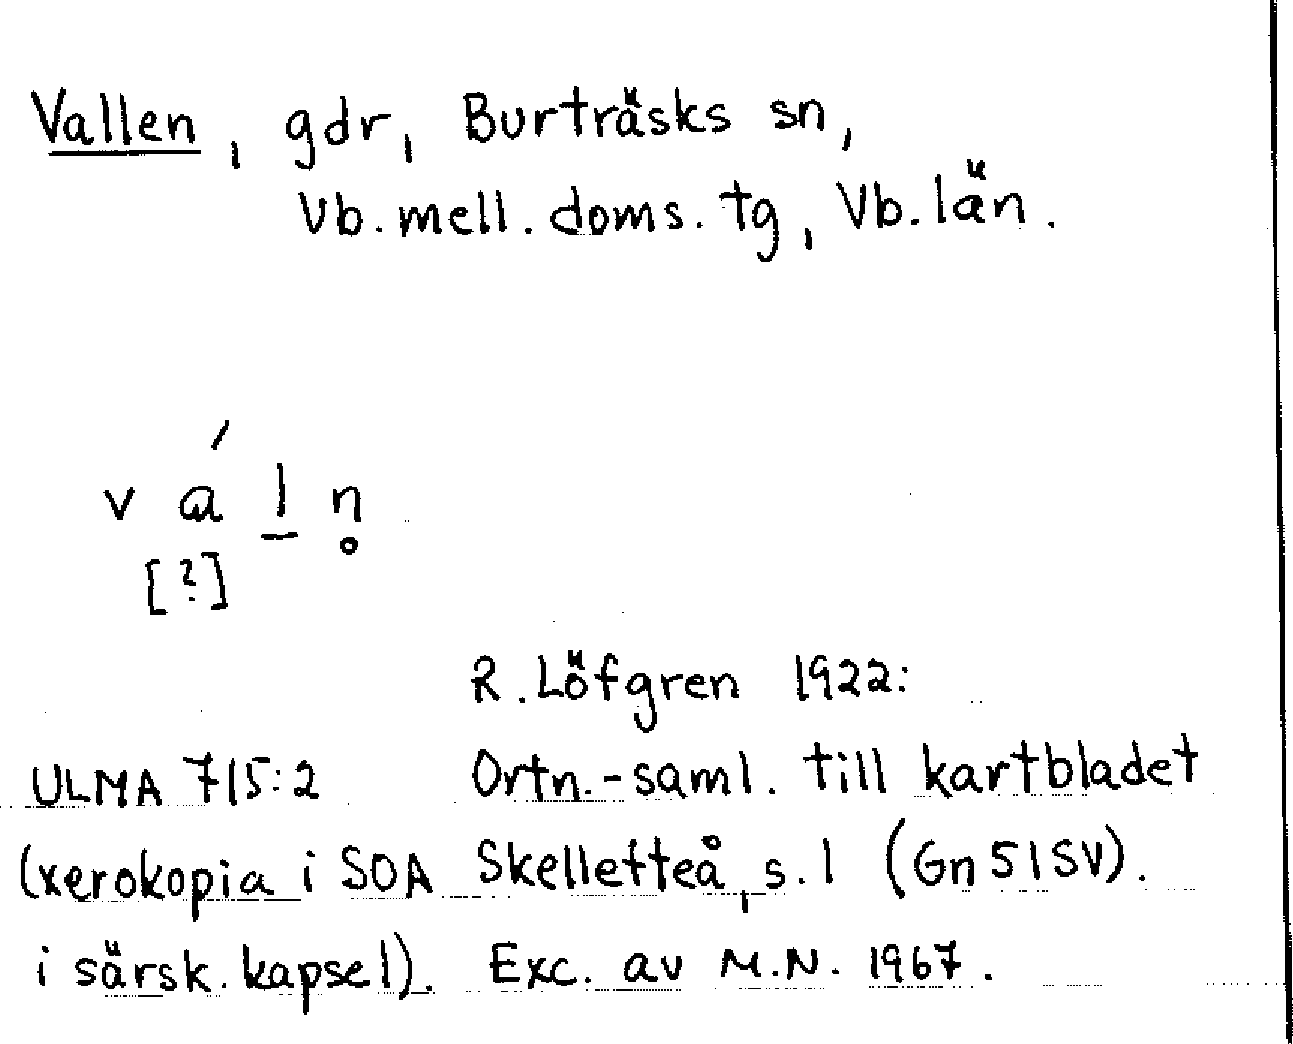 Vallen, gdr, Burträsks sn,
Vb. mell. doms. tg, Vb. län.
v á l̲ n̥
[?]
R. Löfgren 1922:
ULMA 715:2 Ortn.-saml. till kartbladet
(xerokopia i SOA Skellefteå, s. 1 (Gn 51SV).
i särsk. kapsel). Exc. av M.N. 1967.